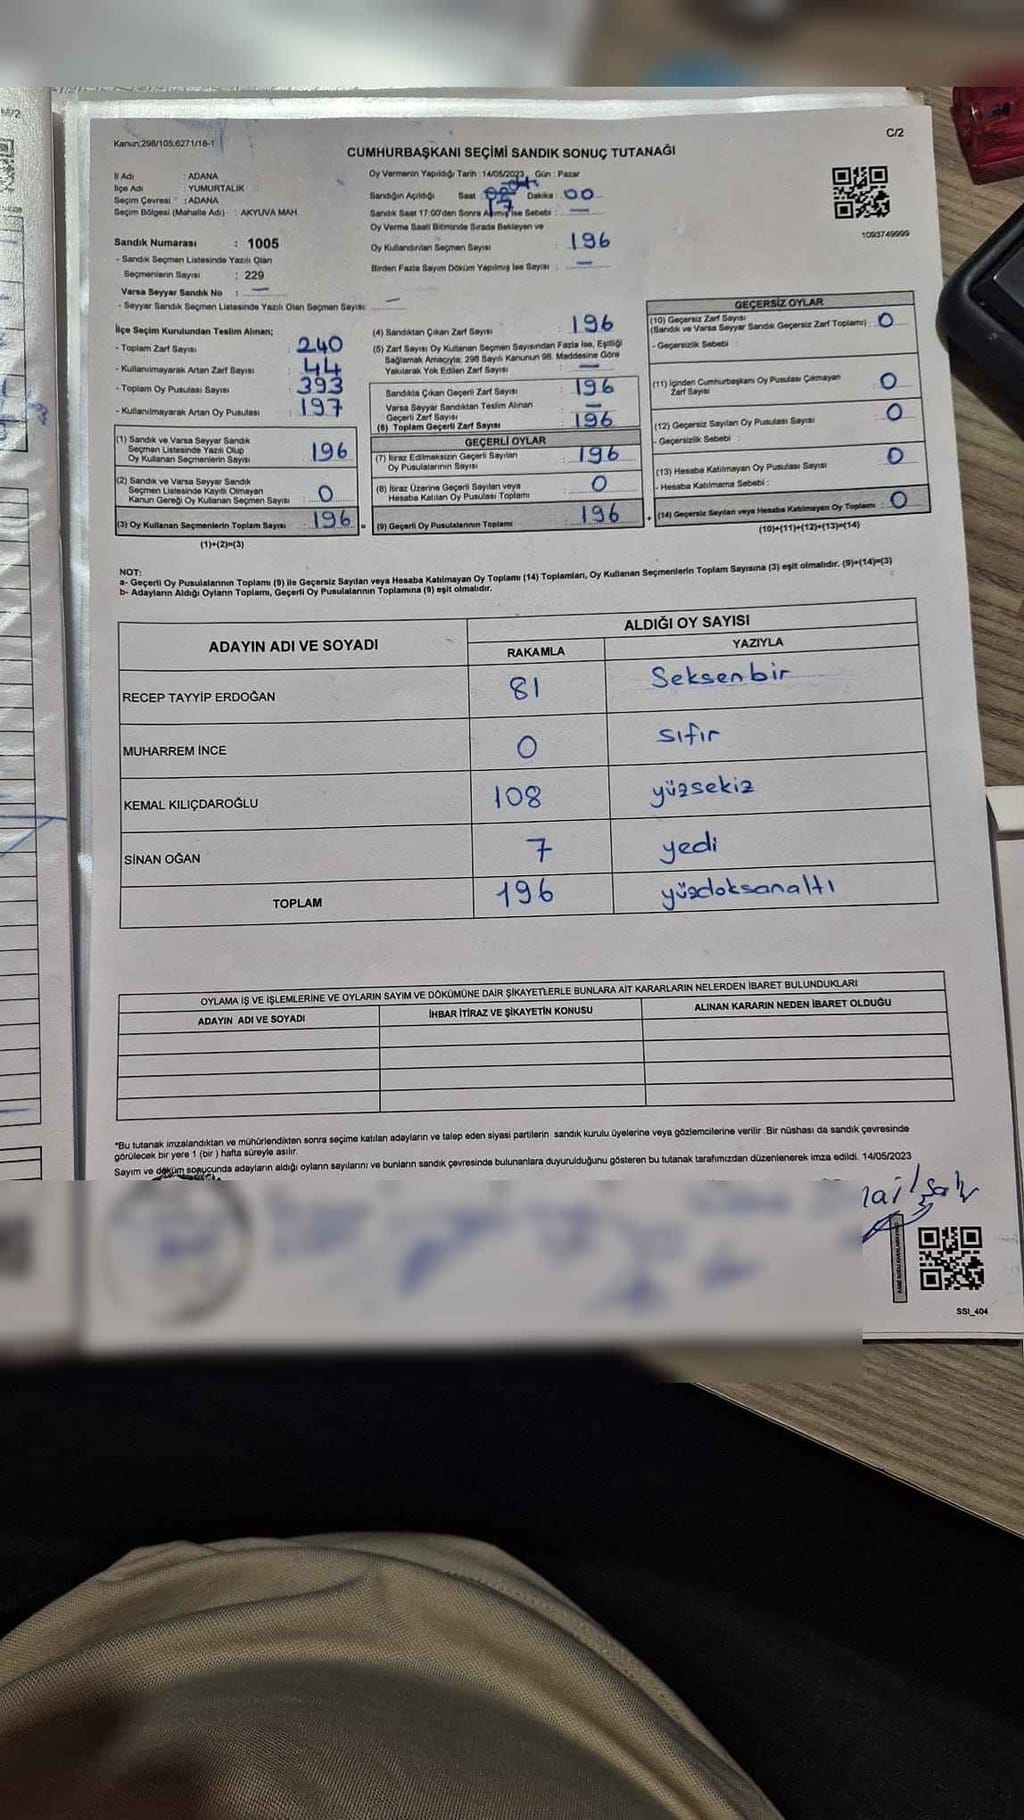 C/2
Kanun:298/105;6271/18-1
CUMHURBAŞKANI SEÇİMİ SANDIK SONUÇ TUTANAĞI
İl Adı : ADANA
İlçe Adı : YUMURTALIK
Seçim Çevresi : ADANA
Seçim Bölgesi (Mahalle Adı) : AKYUVA MAH.
Oy Vermenin Yapıldığı Tarih : 14/05/2023 Gün : Pazar
Sandığın Açıldığı Saat 17 Dakika : 00
Sandık Saat 17:00'dan Sonra Açılmış İse Sebebi : —
Oy Verme Saati Bitiminde Sırada Bekleyen ve
Oy Kullandırılan Seçmen Sayısı : 196
Birden Fazla Sayım Döküm Yapılmış İse Sayısı : —
1093749999
Sandık Numarası : 1005
- Sandık Seçmen Listesinde Yazılı Olan
Seçmenlerin Sayısı : 229
Varsa Seyyar Sandık No : —
- Seyyar Sandık Seçmen Listesinde Yazılı Olan Seçmen Sayısı : —
İlçe Seçim Kurulundan Teslim Alınan;
- Toplam Zarf Sayısı : 240
- Kullanılmayarak Artan Zarf Sayısı : 44
- Toplam Oy Pusulası Sayısı : 393
- Kullanılmayarak Artan Oy Pusulası : 197
(1) Sandık ve Varsa Seyyar Sandık
Seçmen Listesinde Yazılı Olup
Oy Kullanan Seçmenlerin Sayısı 196
(2) Sandık ve Varsa Seyyar Sandık
Seçmen Listesinde Kayıtlı Olmayan
Kanun Gereği Oy Kullanan Seçmen Sayısı 0
(3) Oy Kullanan Seçmenlerin Toplam Sayısı 196
(1)+(2)=(3)
(4) Sandıktan Çıkan Zarf Sayısı : 196
(5) Zarf Sayısı Oy Kullanan Seçmen Sayısından Fazla İse, Eşitliği
Sağlamak Amacıyla; 298 Sayılı Kanunun 98. Maddesine Göre
Yakılarak Yok Edilen Zarf Sayısı : —
Sandıkta Çıkan Geçerli Zarf Sayısı : 196
Varsa Seyyar Sandıktan Teslim Alınan
Geçerli Zarf Sayısı : —
(6) Toplam Geçerli Zarf Sayısı : 196
GEÇERLİ OYLAR
(7) İtiraz Edilmeksizin Geçerli Sayılan
Oy Pusulalarının Sayısı : 196
(8) İtiraz Üzerine Geçerli Sayılan veya
Hesaba Katılan Oy Pusulası Toplamı 0
(9) Geçerli Oy Pusulalarının Toplamı 196
GEÇERSİZ OYLAR
(10) Geçersiz Zarf Sayısı
(Sandık ve Varsa Seyyar Sandık Geçersiz Zarf Toplamı) : 0
- Geçersizlik Sebebi :
(11) İçinden Cumhurbaşkanı Oy Pusulası Çıkmayan
Zarf Sayısı : 0
(12) Geçersiz Sayılan Oy Pusulası Sayısı : 0
- Geçersizlik Sebebi :
(13) Hesaba Katılmayan Oy Pusulası Sayısı : 0
- Hesaba Katılmama Sebebi :
(14) Geçersiz Sayılan veya Hesaba Katılmayan Oy Toplamı : 0
(10)+(11)+(12)+(13)=(14)
NOT:
a- Geçerli Oy Pusulalarının Toplamı (9) ile Geçersiz Sayılan veya Hesaba Katılmayan Oy Toplamı (14) Toplamları, Oy Kullanan Seçmenlerin Toplam Sayısına (3) eşit olmalıdır. (9)+(14)=(3)
b- Adayların Aldığı Oyların Toplamı, Geçerli Oy Pusulalarının Toplamına (9) eşit olmalıdır.
ADAYIN ADI VE SOYADI ALDIĞI OY SAYISI
RAKAMLA YAZIYLA
RECEP TAYYİP ERDOĞAN 81 Seksenbir
MUHARREM İNCE 0 sıfır
KEMAL KILIÇDAROĞLU 108 yüzsekiz
SİNAN OĞAN 7 yedi
TOPLAM 196 yüzdoksanaltı
OYLAMA İŞ VE İŞLEMLERİNE VE OYLARIN SAYIM VE DÖKÜMÜNE DAİR ŞİKAYETLERLE BUNLARA AİT KARARLARIN NELERDEN İBARET BULUNDUKLARI
ADAYIN ADI VE SOYADI İHBAR İTİRAZ VE ŞİKAYETİN KONUSU ALINAN KARARIN NEDEN İBARET OLDUĞU
*Bu tutanak imzalandıktan ve mühürlendikten sonra seçime katılan adayların ve talep eden siyasi partilerin sandık kurulu üyelerine veya gözlemcilerine verilir. Bir nüshası da sandık çevresinde
görülecek bir yere 1 (bir) hafta süreyle asılır.
Sayım ve döküm sonucunda adayların aldığı oyların sayılarını ve bunların sandık çevresinde bulunanlara duyurulduğunu gösteren bu tutanak tarafımızdan düzenlenerek imza edildi. 14/05/2023
SSI_404